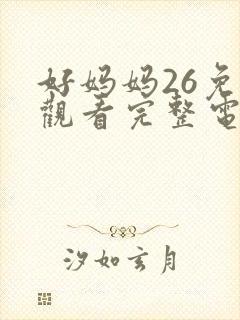 好妈妈26免
觀看完整電
汐如玄月